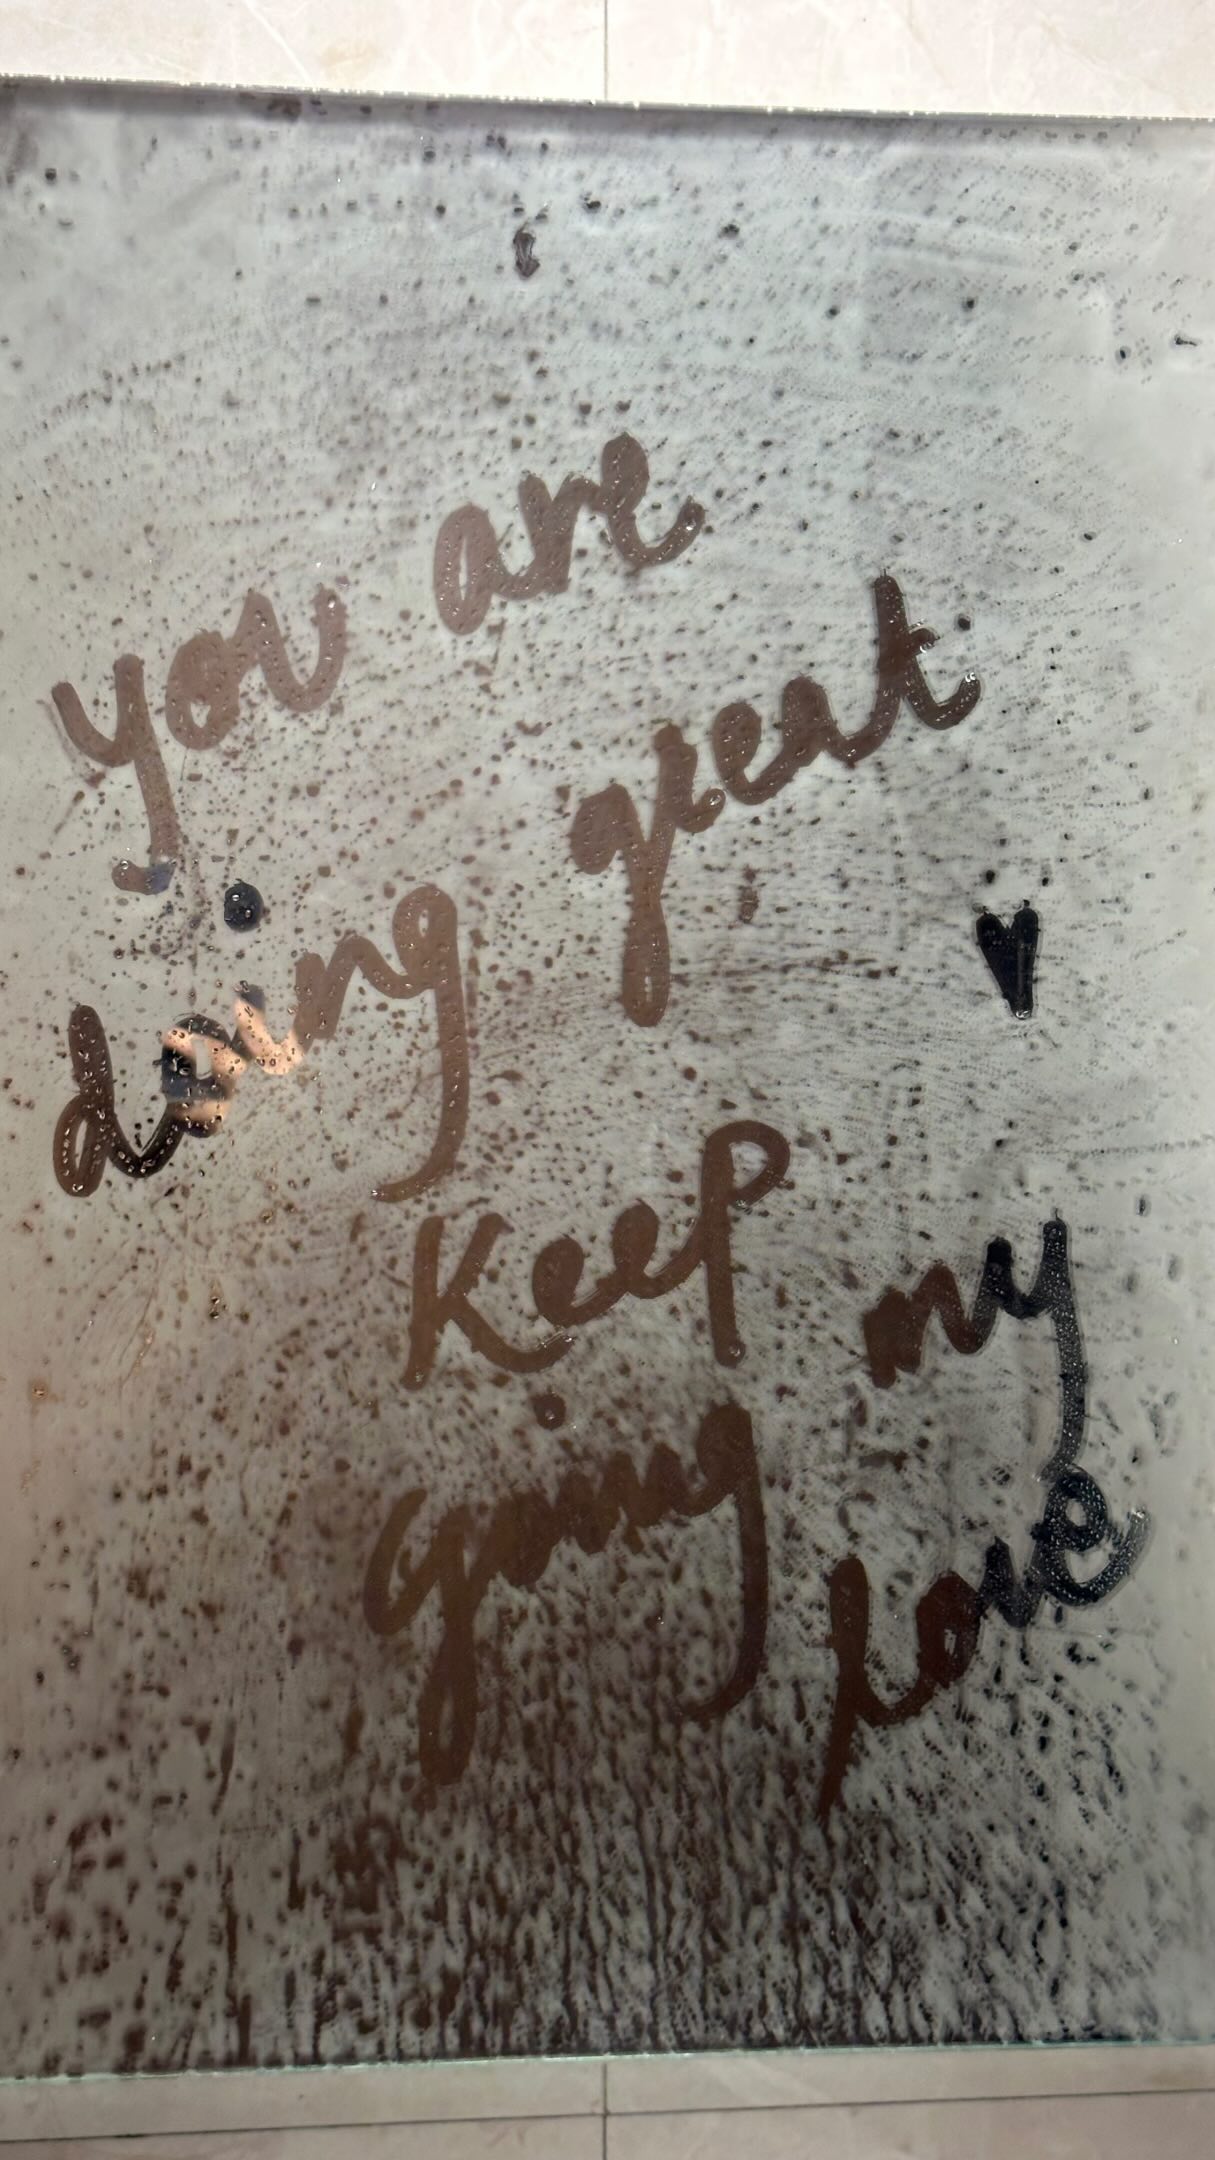 you are
doing great
♥
Keep
going
my
love